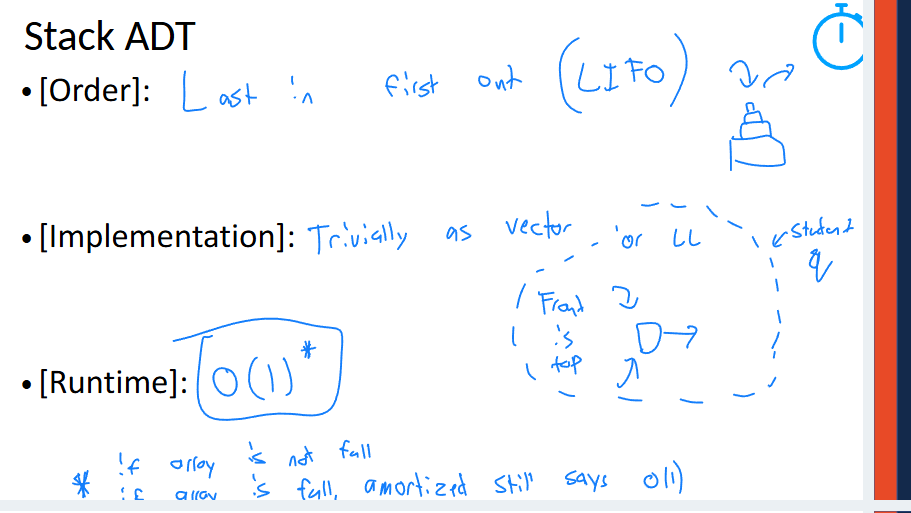 Stack ADT
• [Order]: Last in first out (LIFO)
• [Implementation]: Trivially as vector or LL
← Student q
Front
is
top
• [Runtime]: O(1)*
* if array is not full
if array is full, amortized still says O(1)